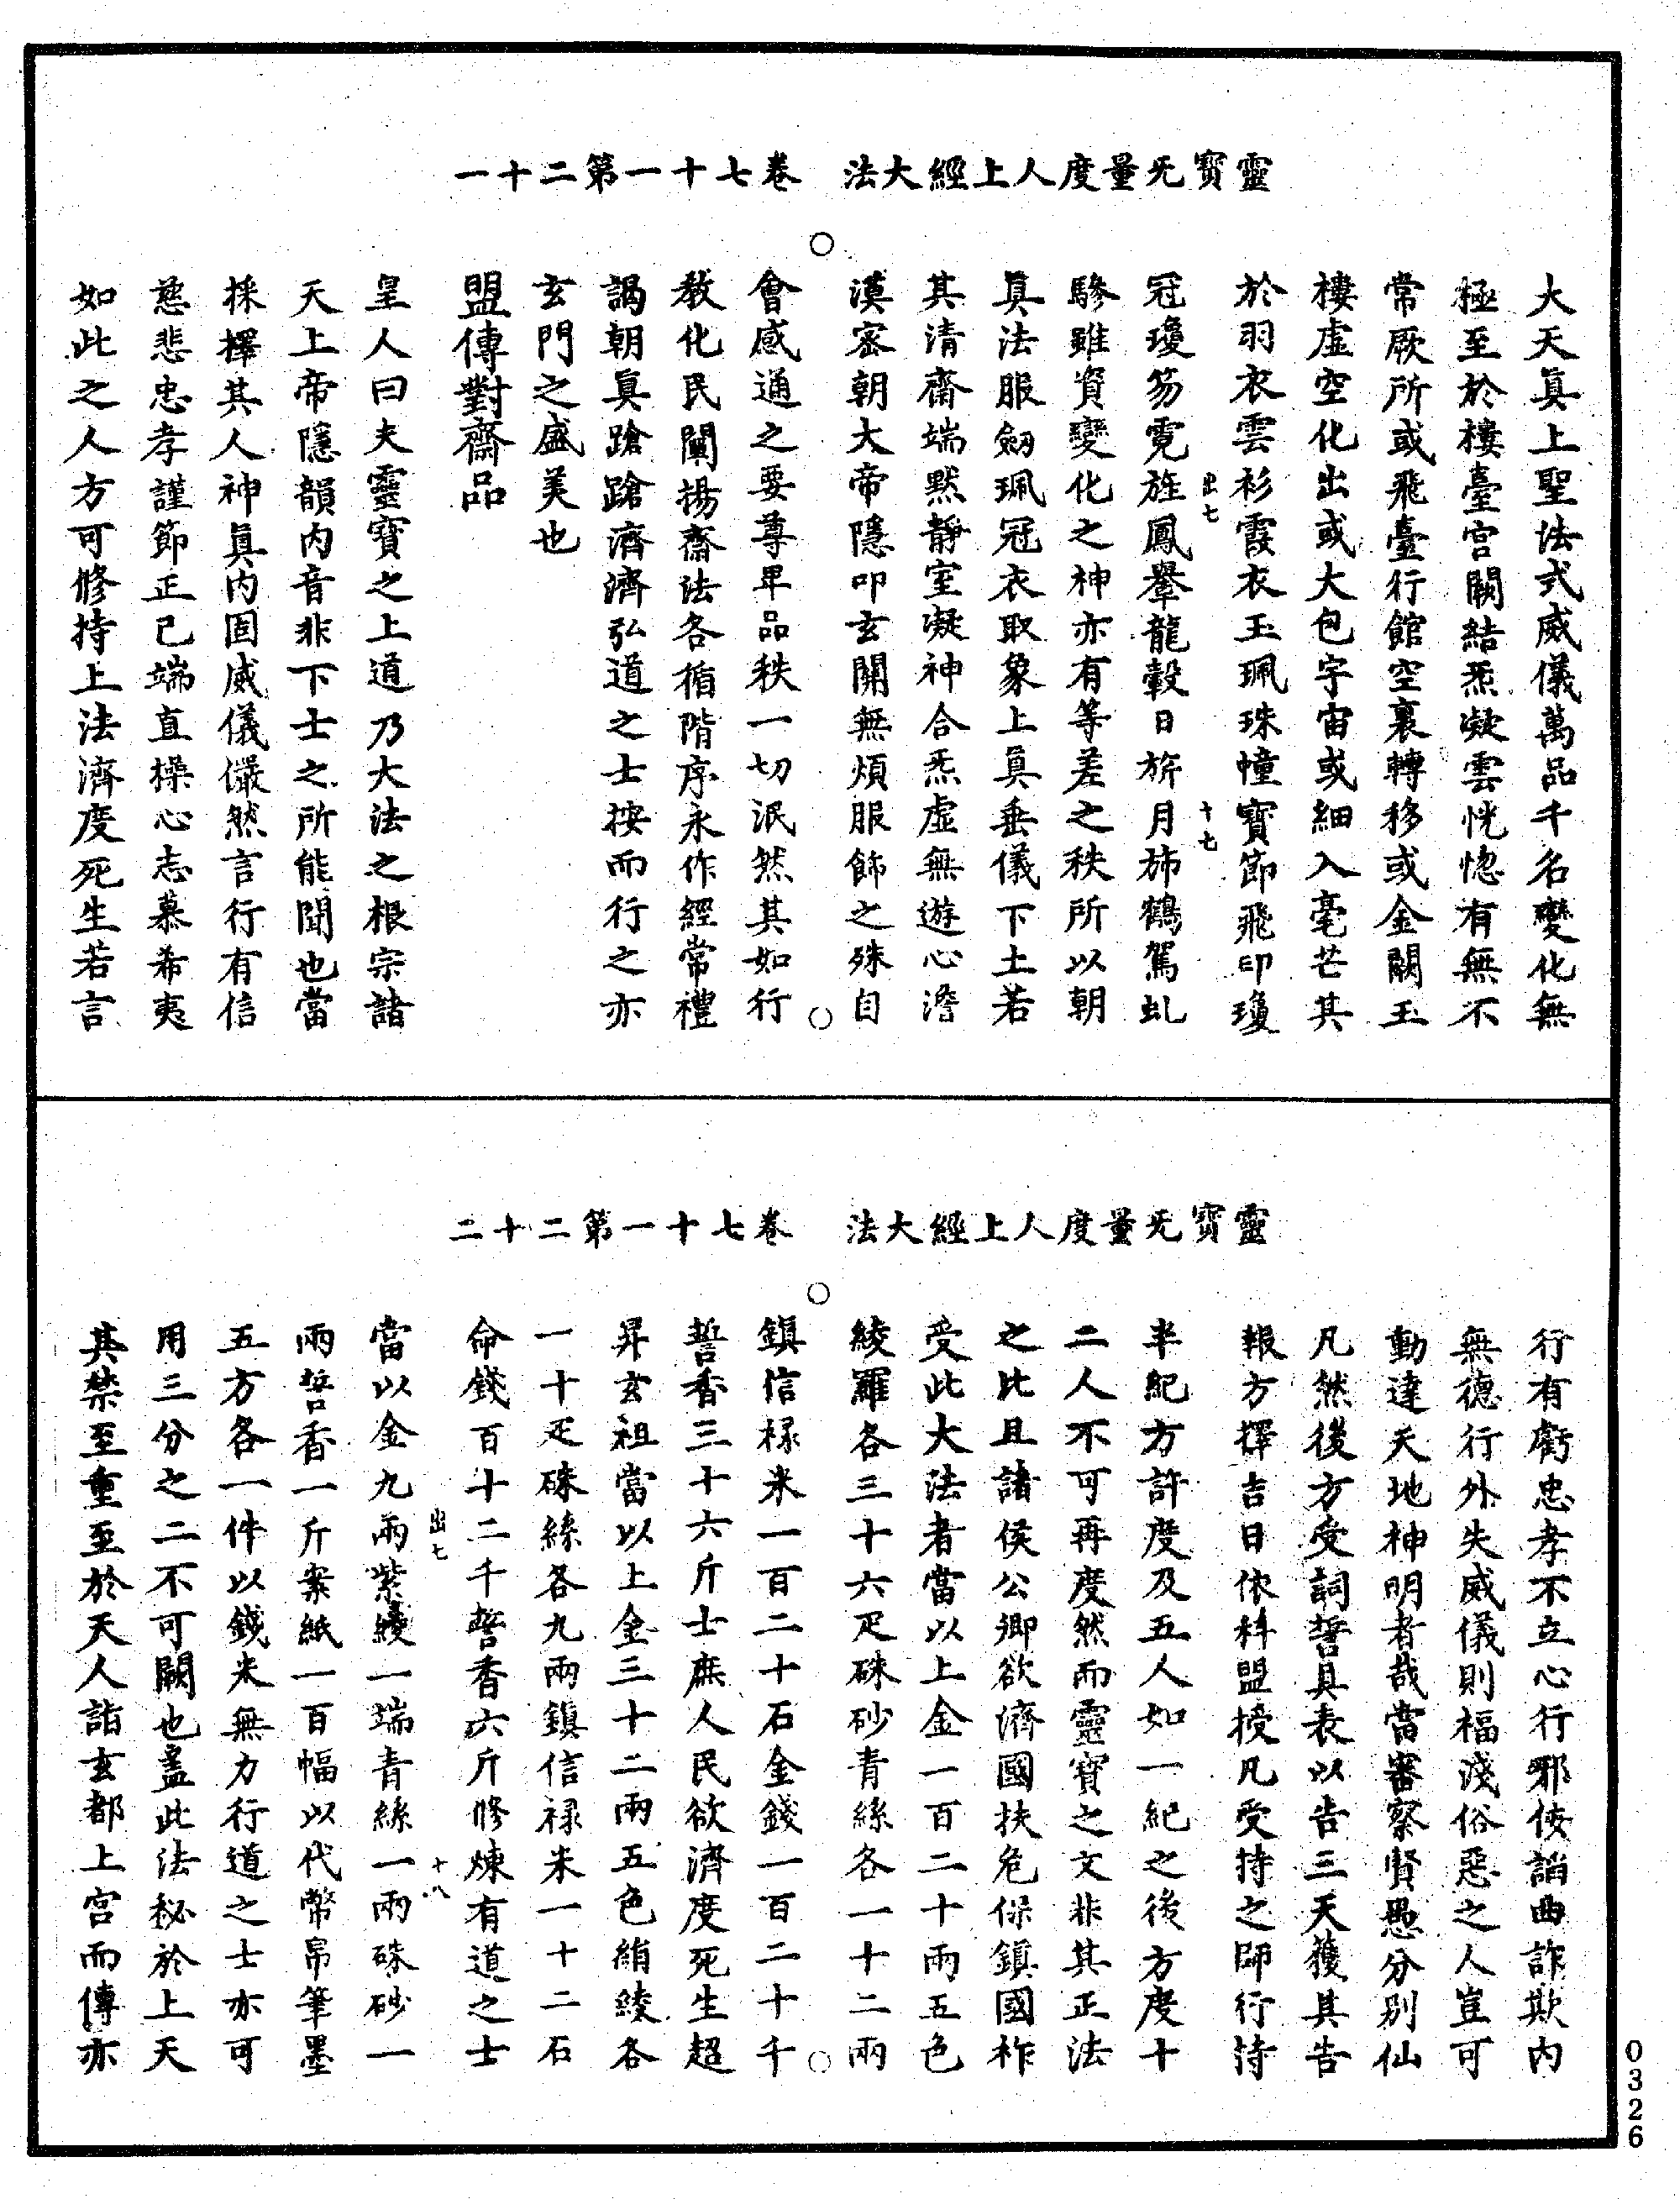 靈寶旡量度人上經大法　卷七十一第二十一
大天眞上聖法式威儀萬品千名變化無
極至於樓臺宮闕結炁凝雲恍惚有無不
常厥所或飛臺行館空裏轉移或金闕玉
樓虛空化出或大包宇宙或細入毫芒其
於羽衣雲衫霞衣玉珮珠幢寶節飛印瓊
出七　十七
冠瓊笏霓旌鳳轝龍轂日旂月斾鶴駕虬
驂雖資變化之神亦有等差之秩所以朝
眞法服劒珮冠衣取象上眞垂儀下土若
其清齋端默靜室凝神合炁虛無遊心澹
漠密朝大帝隱叩玄關無煩服飾之殊自
會感通之要尊卑品秩一切泯然其如行
敎化民闡揚齋法各循階序永作經常禮
謁朝眞蹌蹌濟濟弘道之士按而行之亦
玄門之盛美也
盟傳對齋品
皇人曰夫靈寶之上道乃大法之根宗諸
天上帝隱韻內音非下士之所能聞也當
採擇其人神眞內固威儀儼然言行有信
慈悲忠孝謹節正己端直操心志慕希夷
如此之人方可修持上法濟度死生若言
靈寶旡量度人上經大法　卷七十一第二十二
行有虧忠孝不立心行邪佞諂曲詐欺內
無德行外失威儀則福淺俗惡之人豈可
動達天地神明者哉當審察賢愚分別仙
凡然後方受詞誓具表以告三天獲其告
報方擇吉日依科盟授凡受持之師行持
半紀方許度及五人如一紀之後方度十
二人不可再度然而靈寶之文非其正法
之比且諸侯公卿欲濟國扶危保鎮國祚
受此大法者當以上金一百二十兩五色
綾羅各三十六疋硃砂青絲各一十二兩
鎮信祿米一百二十石金錢一百二十千
誓香三十六斤士庶人民欲濟度死生超
昇玄祖當以上金三十二兩五色絹綾各
一十疋硃絲各九兩鎮信祿米一十二石
命錢百十二千誓香六斤修煉有道之士
出七　十八
當以金九兩紫綾一端青絲一兩硃砂一
兩誓香一斤案紙一百幅以代幣帛筆墨
五方各一件以錢米無力行道之士亦可
用三分之二不可闕也蓋此法秘於上天
其禁至重至於天人詣玄都上宮而傳亦
0326